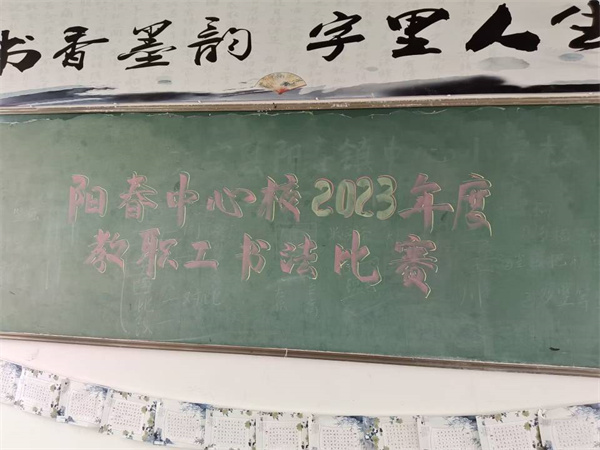 书香墨韵 字里人生
阳春中心校2023年度
教职工书法比赛